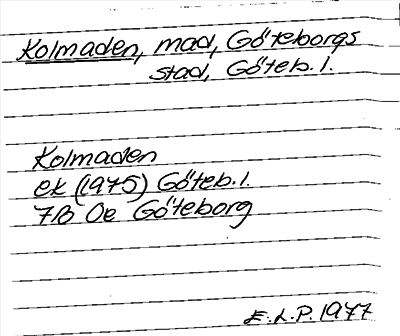 Kolmaden, mad, Göteborgs
stad, Göteb. l.
Kolmaden
ek (1975) Göteb. l.
7B Oe Göteborg
E.L.P. 1977